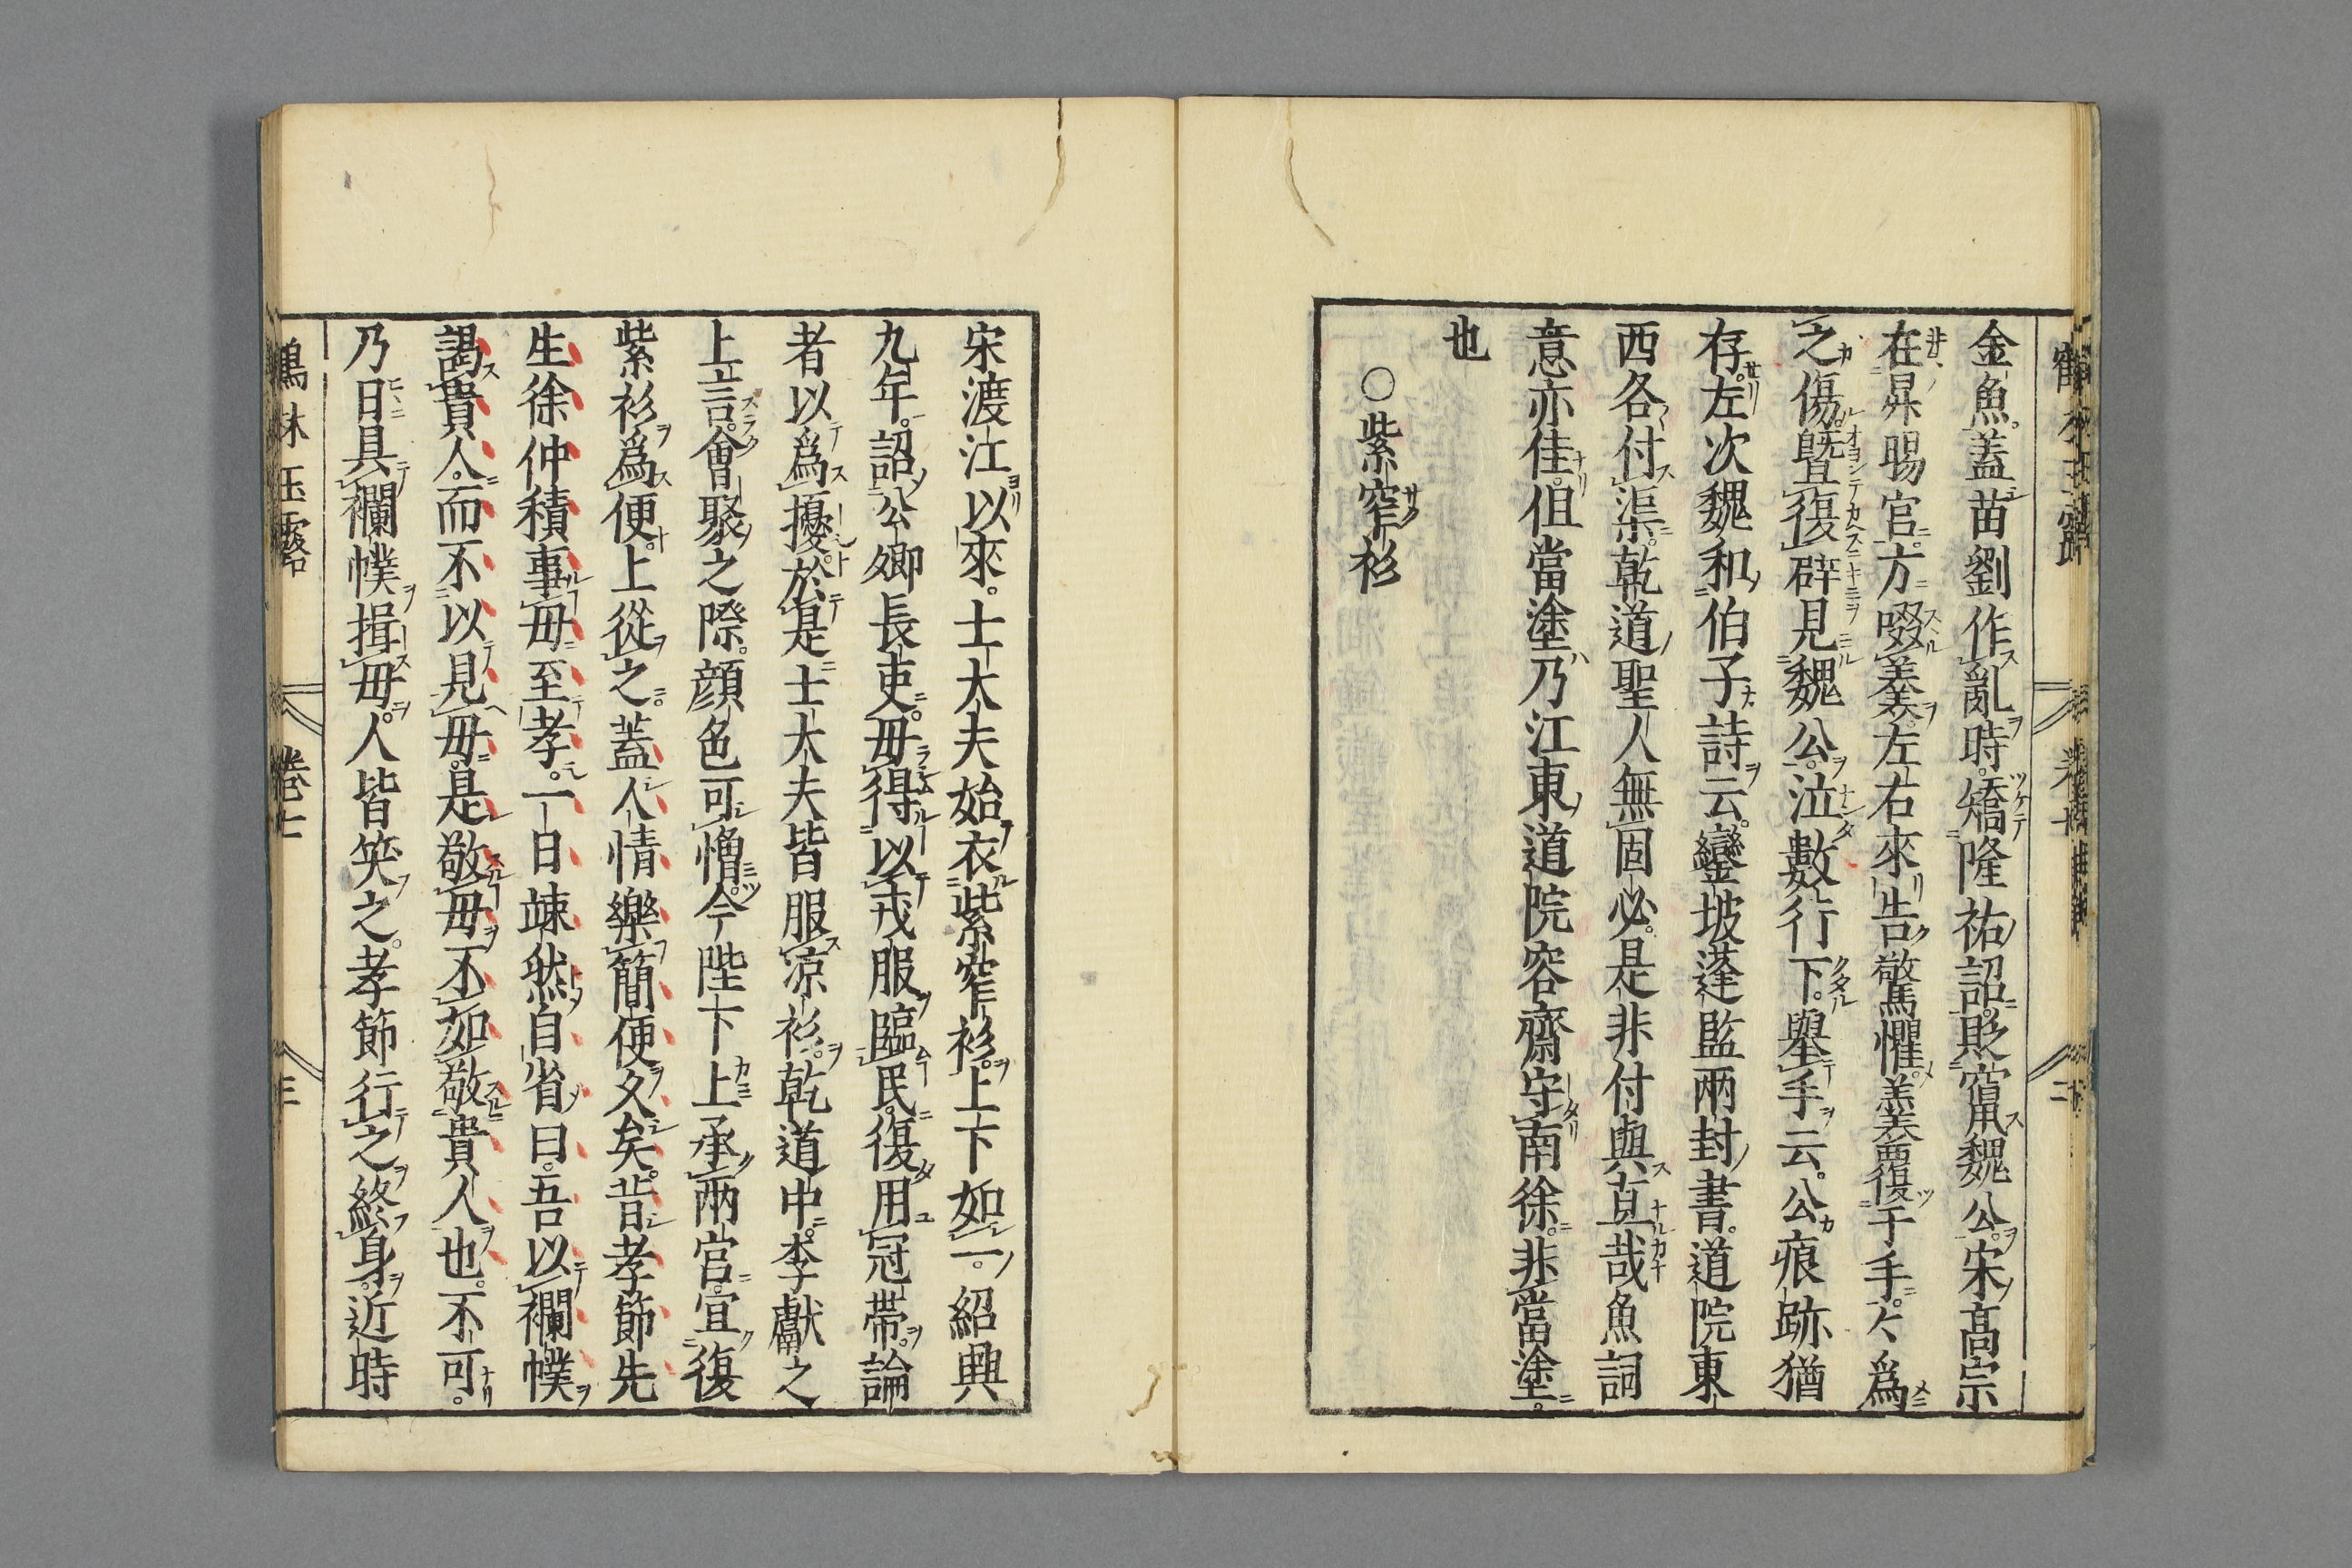 金魚。蓋苗劉作亂時。矯隆祐詔。貶竄魏公。宋高宗
在昇暘宮。方啜羹。左右來告。驚懼。羹覆于手。手爲
之傷。曁復辟。見魏公。泣數行下。舉手云。公痕跡猶
存。左次魏和伯子詩云。鑾坡蓬監兩封書。道院東
西各付渠。乾道聖人無固必。是非付與直哉魚。詞
意亦佳。但當塗乃江東道院。容齋守南徐。非當塗。
也
○紫窄衫
宋渡江以來。士大夫始衣紫窄衫。上下如一。紹興
九年。詔公卿長吏。毋得以戎服臨民。復用冠帶。論
者以爲擾。於是士大夫皆服凉衫。乾道中。李獻之
上言。會聚之際。顔色可憎。今陛下上承兩宮。宜復
紫衫爲便。上從之。蓋人情樂簡便久矣。昔孝節先
生徐仲積事毋至孝。一日竦然自省曰。吾以襴幞
謁貴人。而不以見毋。是敬毋不如敬貴人也。不可。
乃日具襴幞揖毋。人皆笑之。孝節行之終身。近時
鶴林玉露 卷七 三